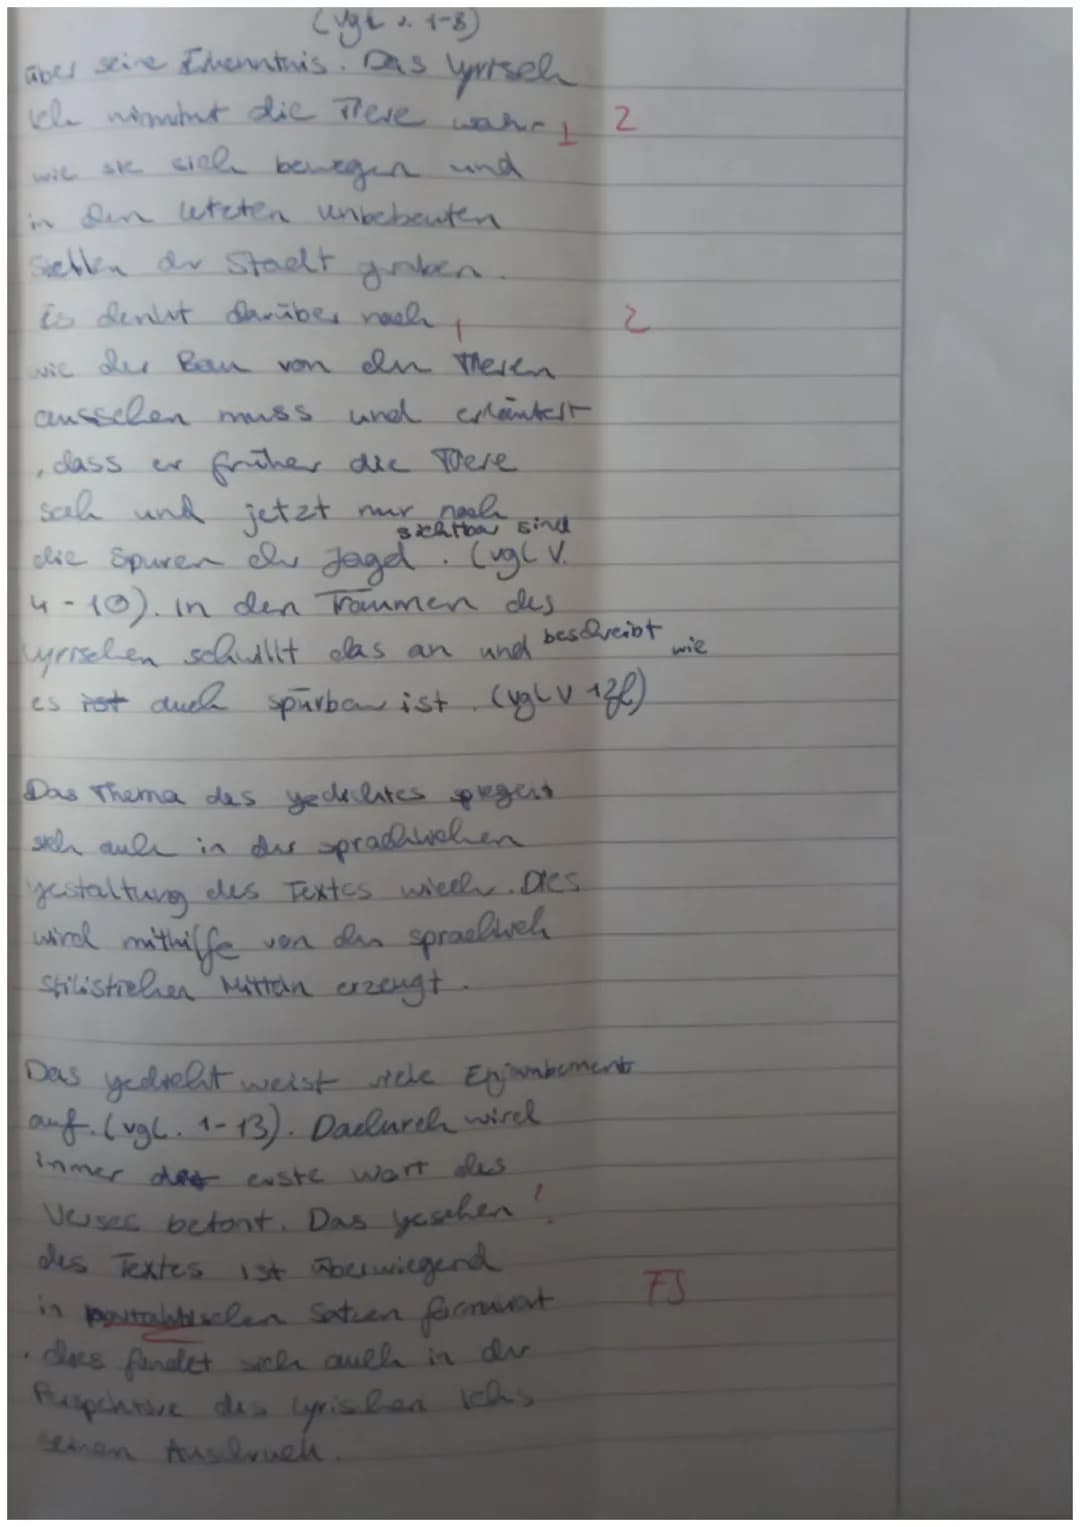 (vgl v. 1-8)
über seine Erkenntnis. Das lyrisch
ich nimmt die Tiere wahr, 2
wie sie sich bewegen und
in den letzten unbebauten
Stellen der Stadt graben.
Es denkt darüber nach, 2
wie der Bau von den Tieren
aussehen muss und erläutert
, dass er früher die Tiere
sah und jetzt nur noch
sichtbar sind
die Spuren der Jagd. (vgl V.
4-10). In den Träumen des
lyrischen schwillt das an und beschreibt wie
es ist auch spürbar ist. (vgl V 12f)
Das Thema des gedichtes spiegelt
sich auch in der sprachlichen
gestaltung des Textes wieder. Dies
wird mithilfe von den sprachlich
stilistischen Mitteln erzeugt.
Das gedicht weist viele Enjambement
auf. (vgl. 1-13). Dadurch wird
immer das erste Wort des
Verses betont. Das geschehen !
des Textes ist überwiegend
in Sätzen formuliert FS
. dies findet sich auch in der
Perspektive des lyrischen Ichs
seinen Ausdruck.